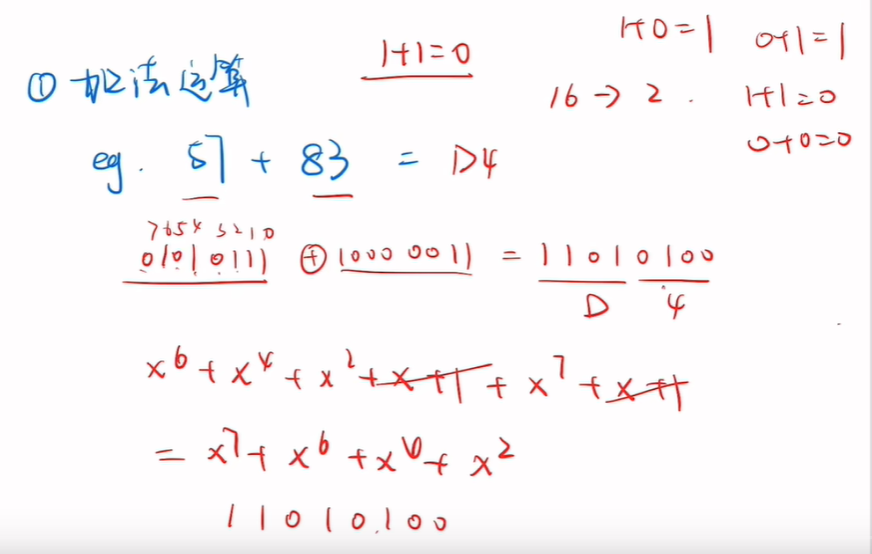 1+0=1 0+1=1
1+1=0
① 加法运算
16 → 2. 1+1=0
0+0=0
eg. 57 + 83 = D4
7654 3210
01010111 ⊕ 1000 0011 = 11010100
D 4
x⁶ + x⁴ + x² + x + 1 + x⁷ + x + 1
= x⁷ + x⁶ + x⁴ + x²
11010100